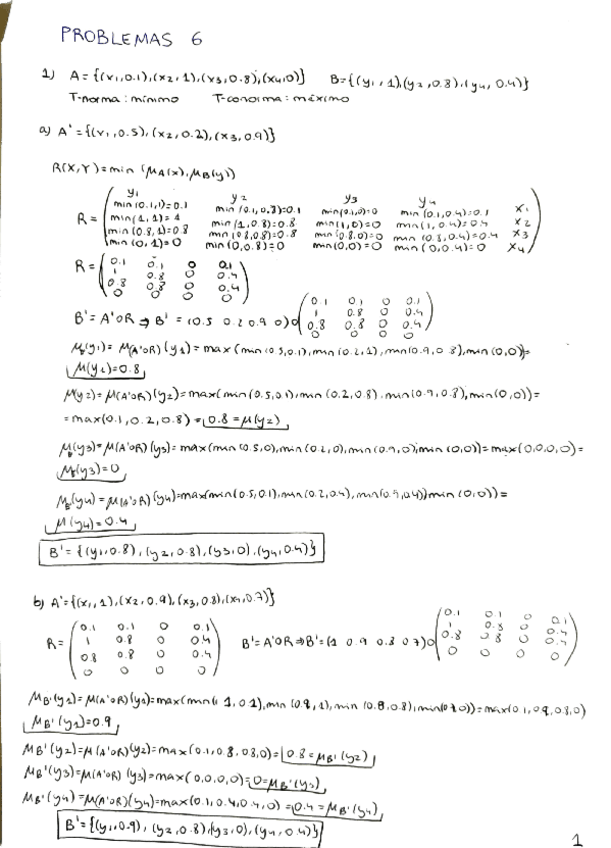 PROBLEMAS 6
1) A = {(x1,0.1),(x2,1),(x3,0.8),(x4,0)} B={(y1,1),(y2,0.8),(y4,0.4)}
T-norma: mínimo T-conorma: máximo
a) A'={(x1,0.5),(x2,0.2),(x3,0.9)}
R(X,Y)=min (μA(x),μB(y))
y1 y2 y3 y4
min(0.1,1)=0.1 min(0.1,0.8)=0.1 min(0.1,0)=0 min(0.1,0.4)=0.1 x1
R= min(1,1)=1 min(1,0.8)=0.8 min(1,0)=0 min(1,0.4)=0.4 x2
min(0.8,1)=0.8 min(0.8,0.8)=0.8 min(0.8,0)=0 min(0.8,0.4)=0.4 x3
min(0,1)=0 min(0,0.8)=0 min(0,0)=0 min(0,0.4)=0 x4
0.1 0.1 0 0.1
R= 1 0.8 0 0.4
0.8 0.8 0 0.4
0 0 0 0
B'=A'oR ⇒ B' = (0.5 0.2 0.9 0)o
0.1 0.1 0 0.1
1 0.8 0 0.4
0.8 0.8 0 0.4
0 0 0 0
μB'(y1)= μ(A'oR)(y1)=max(min(0.5,0.1),min(0.2,1),min(0.9,0.8),min(0,0))=
μ(y1)=0.8
μ(y2)= μ(A'oR)(y2)=max(min(0.5,0.1),min(0.2,0.8),min(0.9,0.8),min(0,0))=
=max(0.1,0.2,0.8)=0.8=μ(y2)
μB'(y3)=μ(A'oR)(y3)=max(min(0.5,0),min(0.2,0),min(0.9,0),min(0,0))=max(0,0,0,0)=
μB'(y3)=0
μB'(y4)=μ(A'oR)(y4)=max(min(0.5,0.1),min(0.2,0.4),min(0.9,0.4))min(0,0))=
μ(y4)=0.4
B'={(y1,0.8),(y2,0.8),(y3,0),(y4,0.4)}
b) A'={(x1,1),(x2,0.9),(x3,0.8),(x4,0.7)}
0.1 0.1 0 0.1
R= 1 0.8 0 0.4
0.8 0.8 0 0.4
0 0 0 0
B'=A'oR⇒B'=(1 0.9 0.8 0.7)o
0.1 0.1 0 0.1
1 0.8 0 0.4
0.8 0.8 0 0.4
0 0 0 0
μB'(y1)=μ(A'oR)(y1)=max(min(1,0.1),min(0.9,1),min(0.8,0.8),min(0.7,0))=max(0.1,0.9,0.8,0)
μB'(y1)=0.9
μB'(y2)=μ(A'oR)(y2)=max(0.1,0.8,0.8,0)=0.8=μB'(y2)
μB'(y3)=μ(A'oR)(y3)=max(0,0,0,0)=0=μB'(y3)
μB'(y4)=μ(A'oR)(y4)=max(0.1,0.4,0.4,0)=0.4=μB'(y4)
B'={(y1,0.9),(y2,0.8),(y3,0),(y4,0.4)}
1